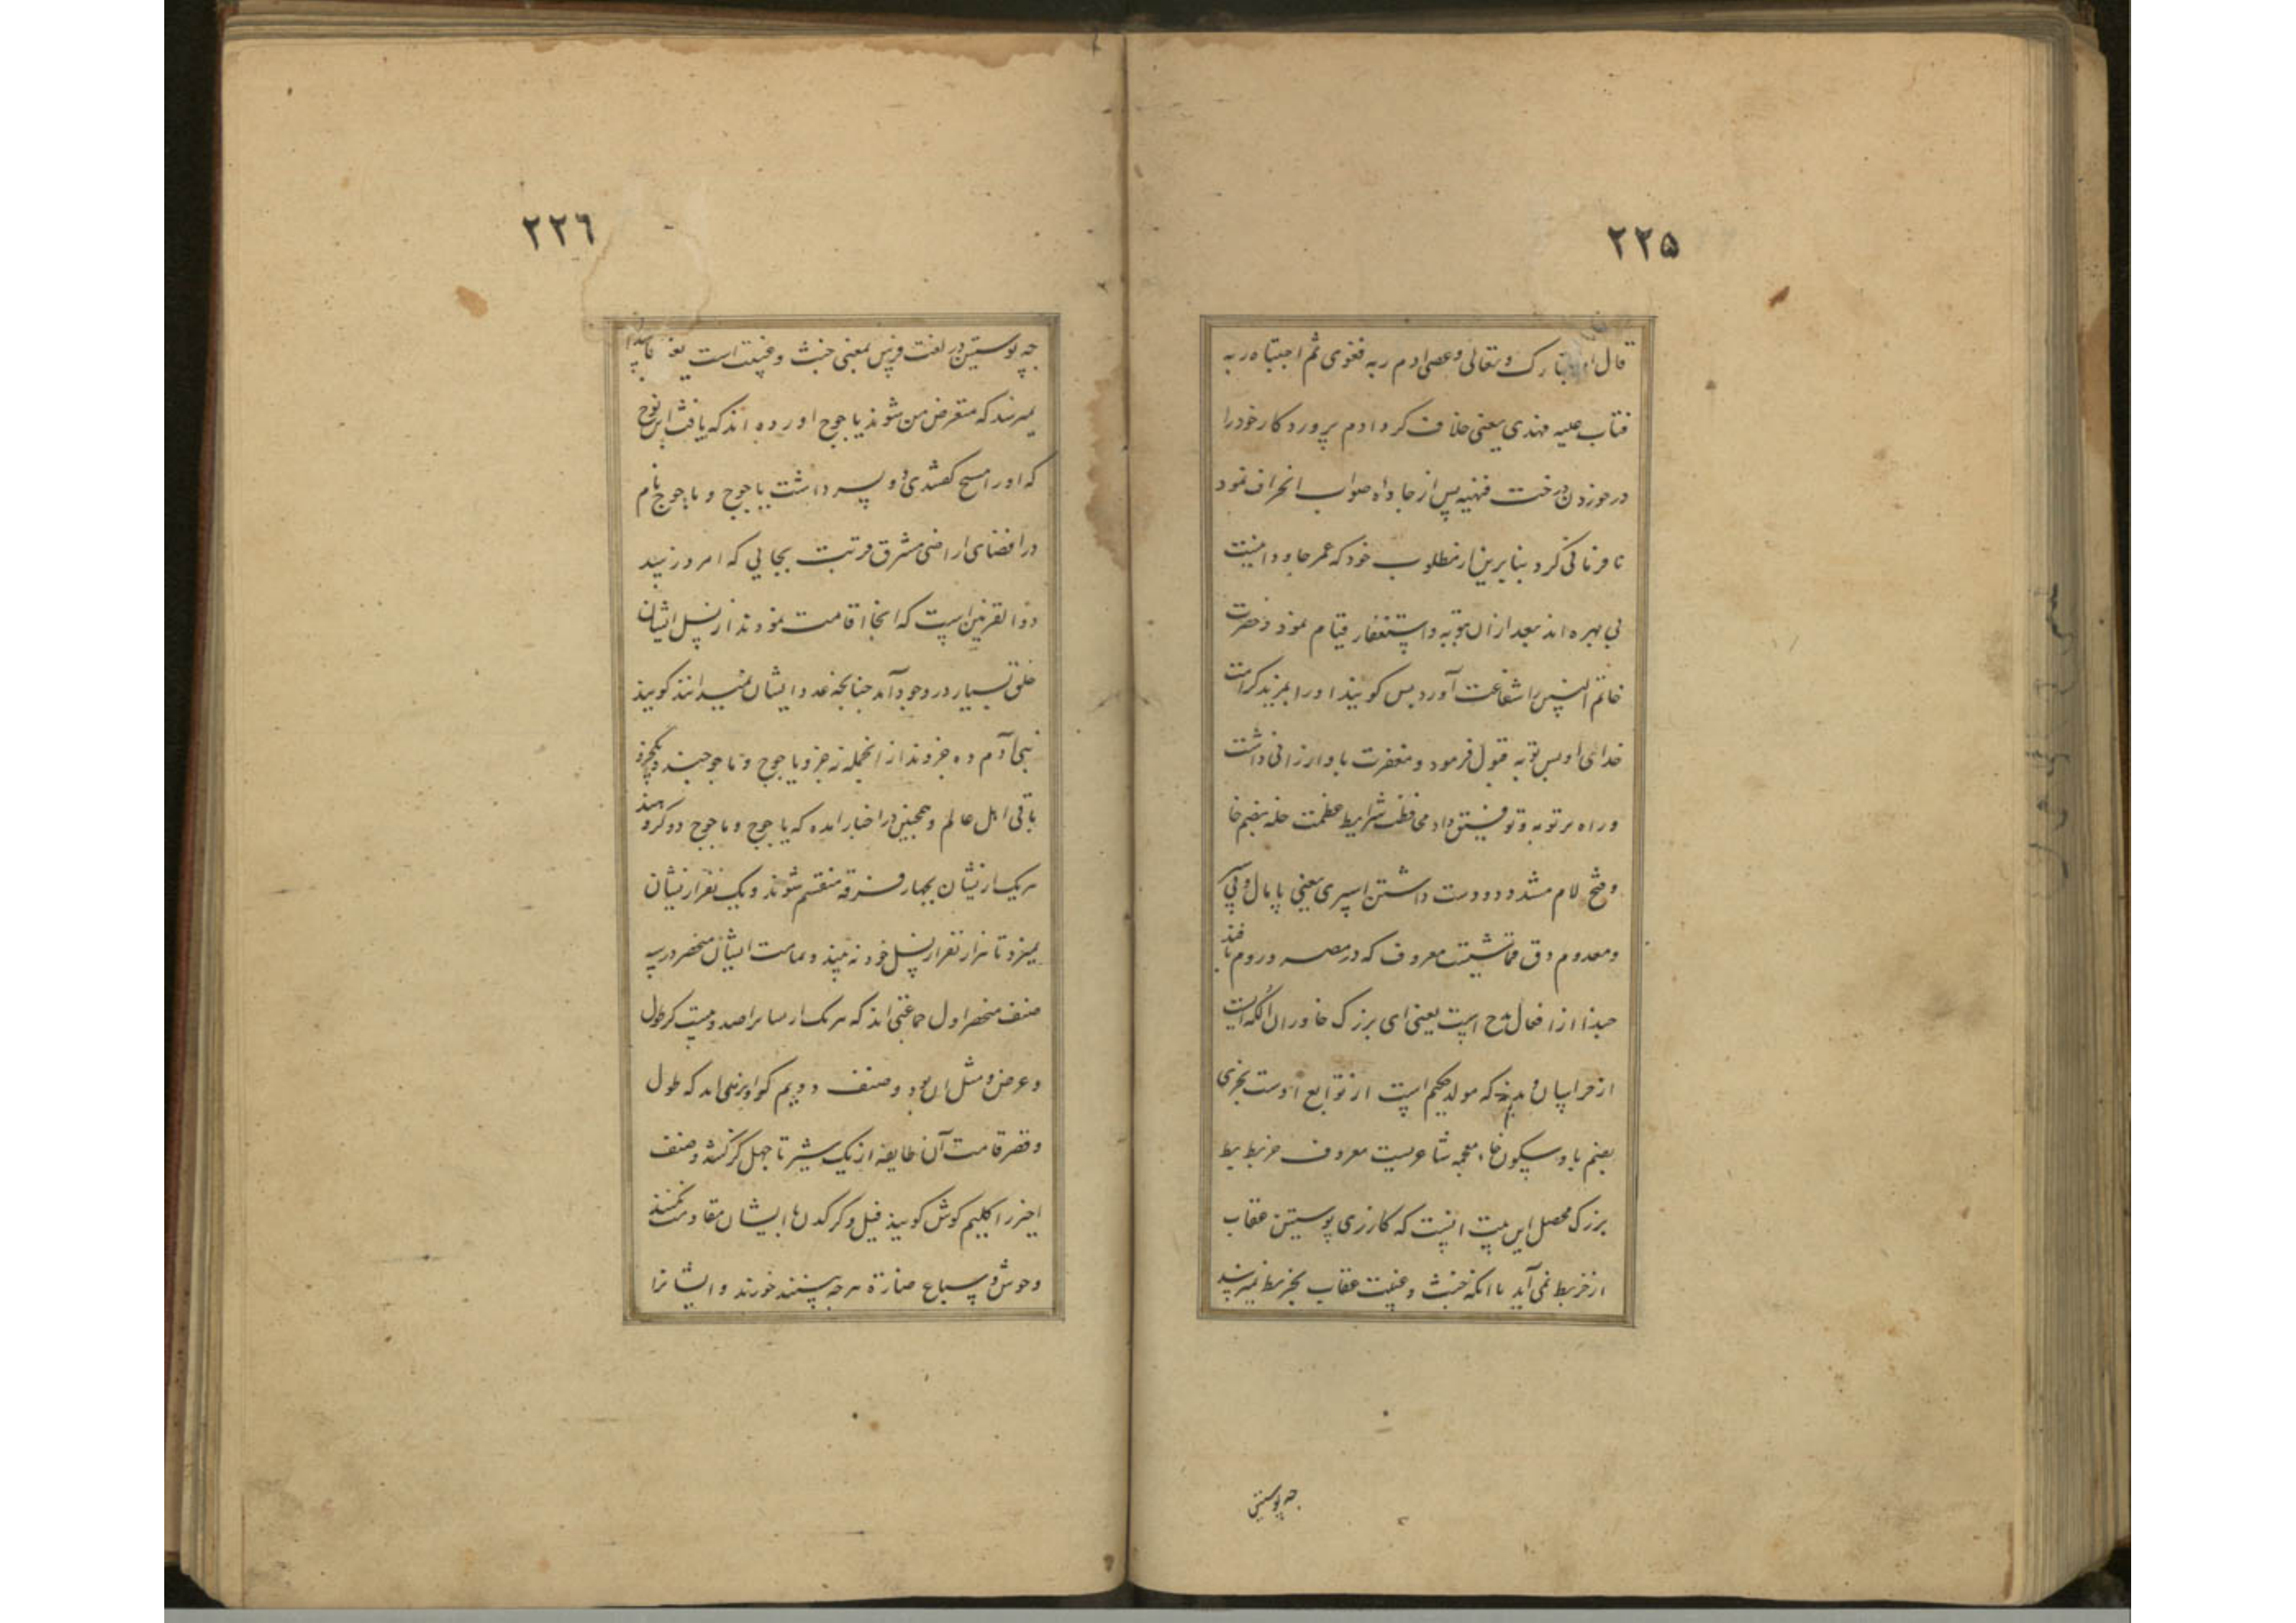 ۲۲۵
قال الله تبارک و تعالی وعصی ادم ربه فغوی ثم اجتباه ربه
فتاب علیه فهدی یعنی خلاف کرد ادم پروردکار خود را
در خوردن درخت فنهیه پس از جاده صواب انحراف نمود
نافرمانی کرد بنابرین از مطلوب خود که عمر جاودانیست
بی بهره ماند بعد ازان بتوبه و استغفار قیام نمود و حضرت
خاتم النبیین را شفاعت آورد پس کویند او را بمزید کرامت
خدای او پس توبه قبول فرمود و مغفرت باو ارزانی داشت
و راه بر توبه و توفیق داد محافظت شرایط عظمت خله بضم خا
و فتح لام مشدد دوست داشتن اسپری یعنی پایمال و پی
و معدوم دق قماشیست معروف که در مصر و روم بافند
حبذا از افعال مدح است یعنی ای بزرک خاوران الکه ایست
از خراسان و مهنه که مولد حکیم است از توابع اوست بختری
بضم با و سکون خاء معجمه شاعریست معروف خربط بط
بزرک محصل این بیت انیست که کارزی پوستین عقاب
از خربط نمی آید با انکه خبث و غیبت عقاب بخربط نمیرسد
چه پوستین
۲۲٦
چه پوستین در لغت فرس بمعنی خبث و غیبت است
نمیرسد که متعرض من شوند یاجوج اورده اند که یافث ابن نوح
که او را مسیح کفتندی دو پسر داشت یاجوج و ماجوج نام
در اقصای اراضی مشرق مرتبت بجایی که امروز سد
ذوالقرنین است که انجا اقامت نمودند از نسل ایشان
خلق بسیار در وجود آمد چنانچه عدد ایشان نمیدانند کویند
بنی آدم ده جزوند از انجمله نه جزو یاجوج و ماجوجند و یکجزو
باقی اهل عالم و همچنین در اخبار امده که یاجوج و ماجوج دو کروهند
هریک ازیشان بچهار فرقه منقسم شوند و یک نفر ازیشان
نمیرد تا هزار نفر از نسل خود نه بیند و تمامت ایشان منحصر در سه
صنف منحصر اول جماعتی اند که هریک از صد و بیست کز طول
و عرض و مثل ان بود و صنف دویم که طول
و قصر قامت آن طایفه از یک شبر تا چهل کز کشد و صنف
اخیر را کلیم کوش کویند فیل و کرکدن با ایشان مقاومت نکنند
و وحوش و سباع هرچه بینند خورند و ایشانرا